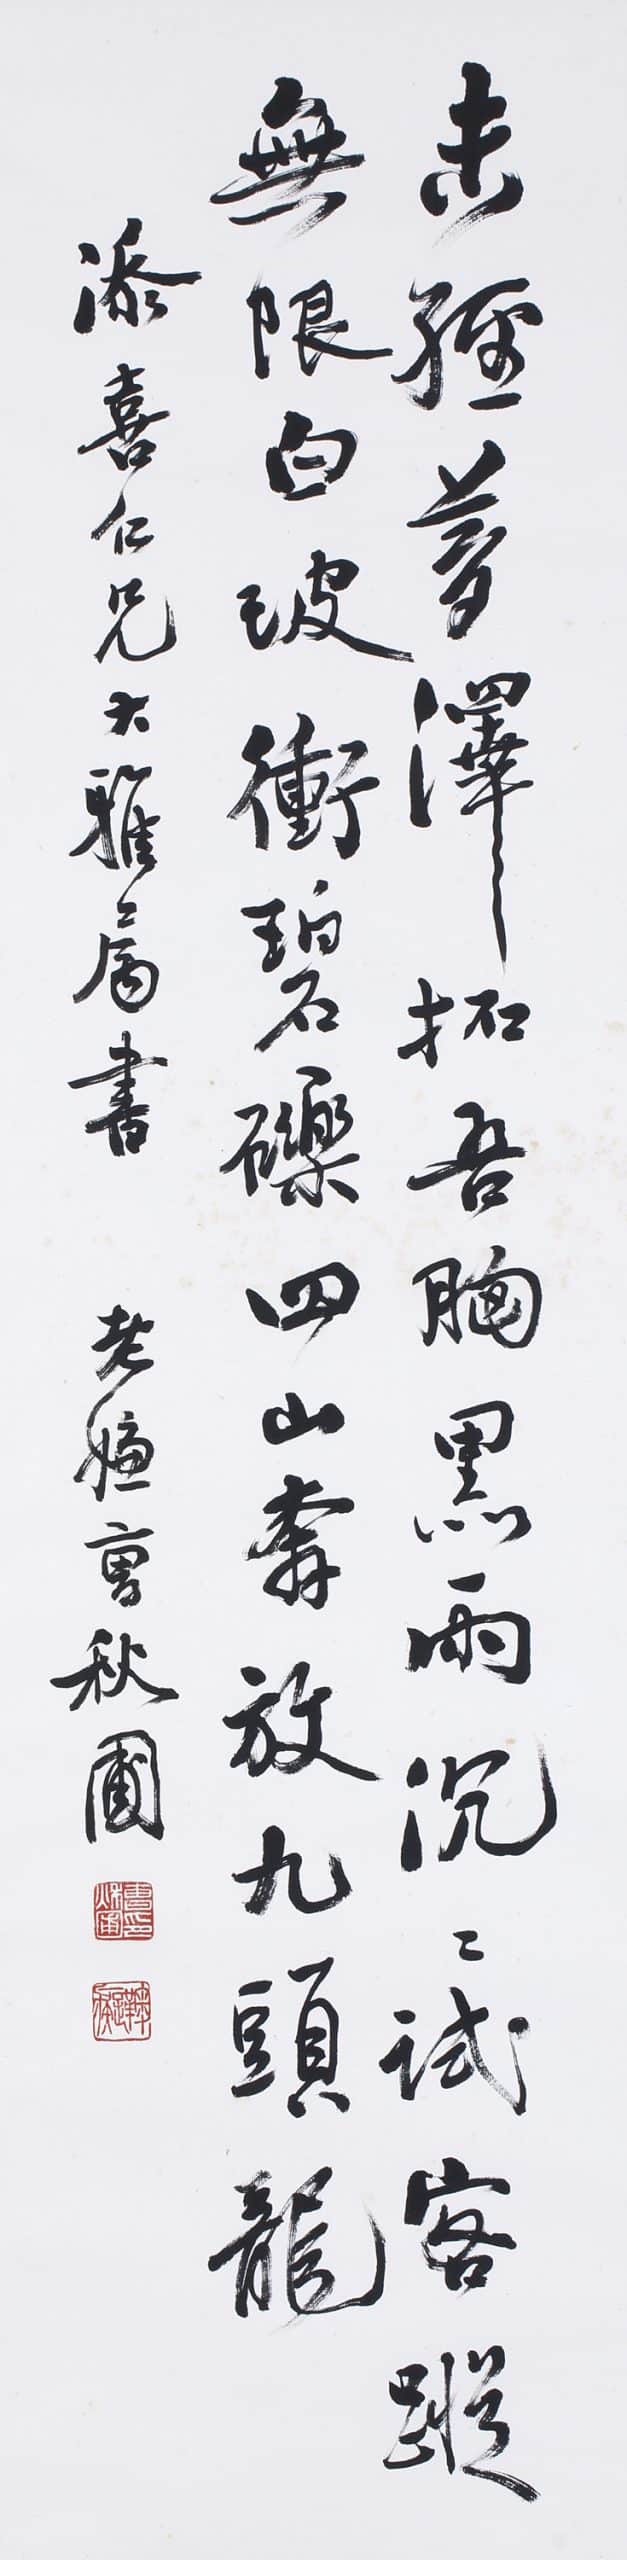 未經夢澤拓吾胸黑雨沉〻試客蹤
無限白波衝碧礫四山奔放九頭龍
添喜仁兄大雅屬書 老嫌曹秋圃